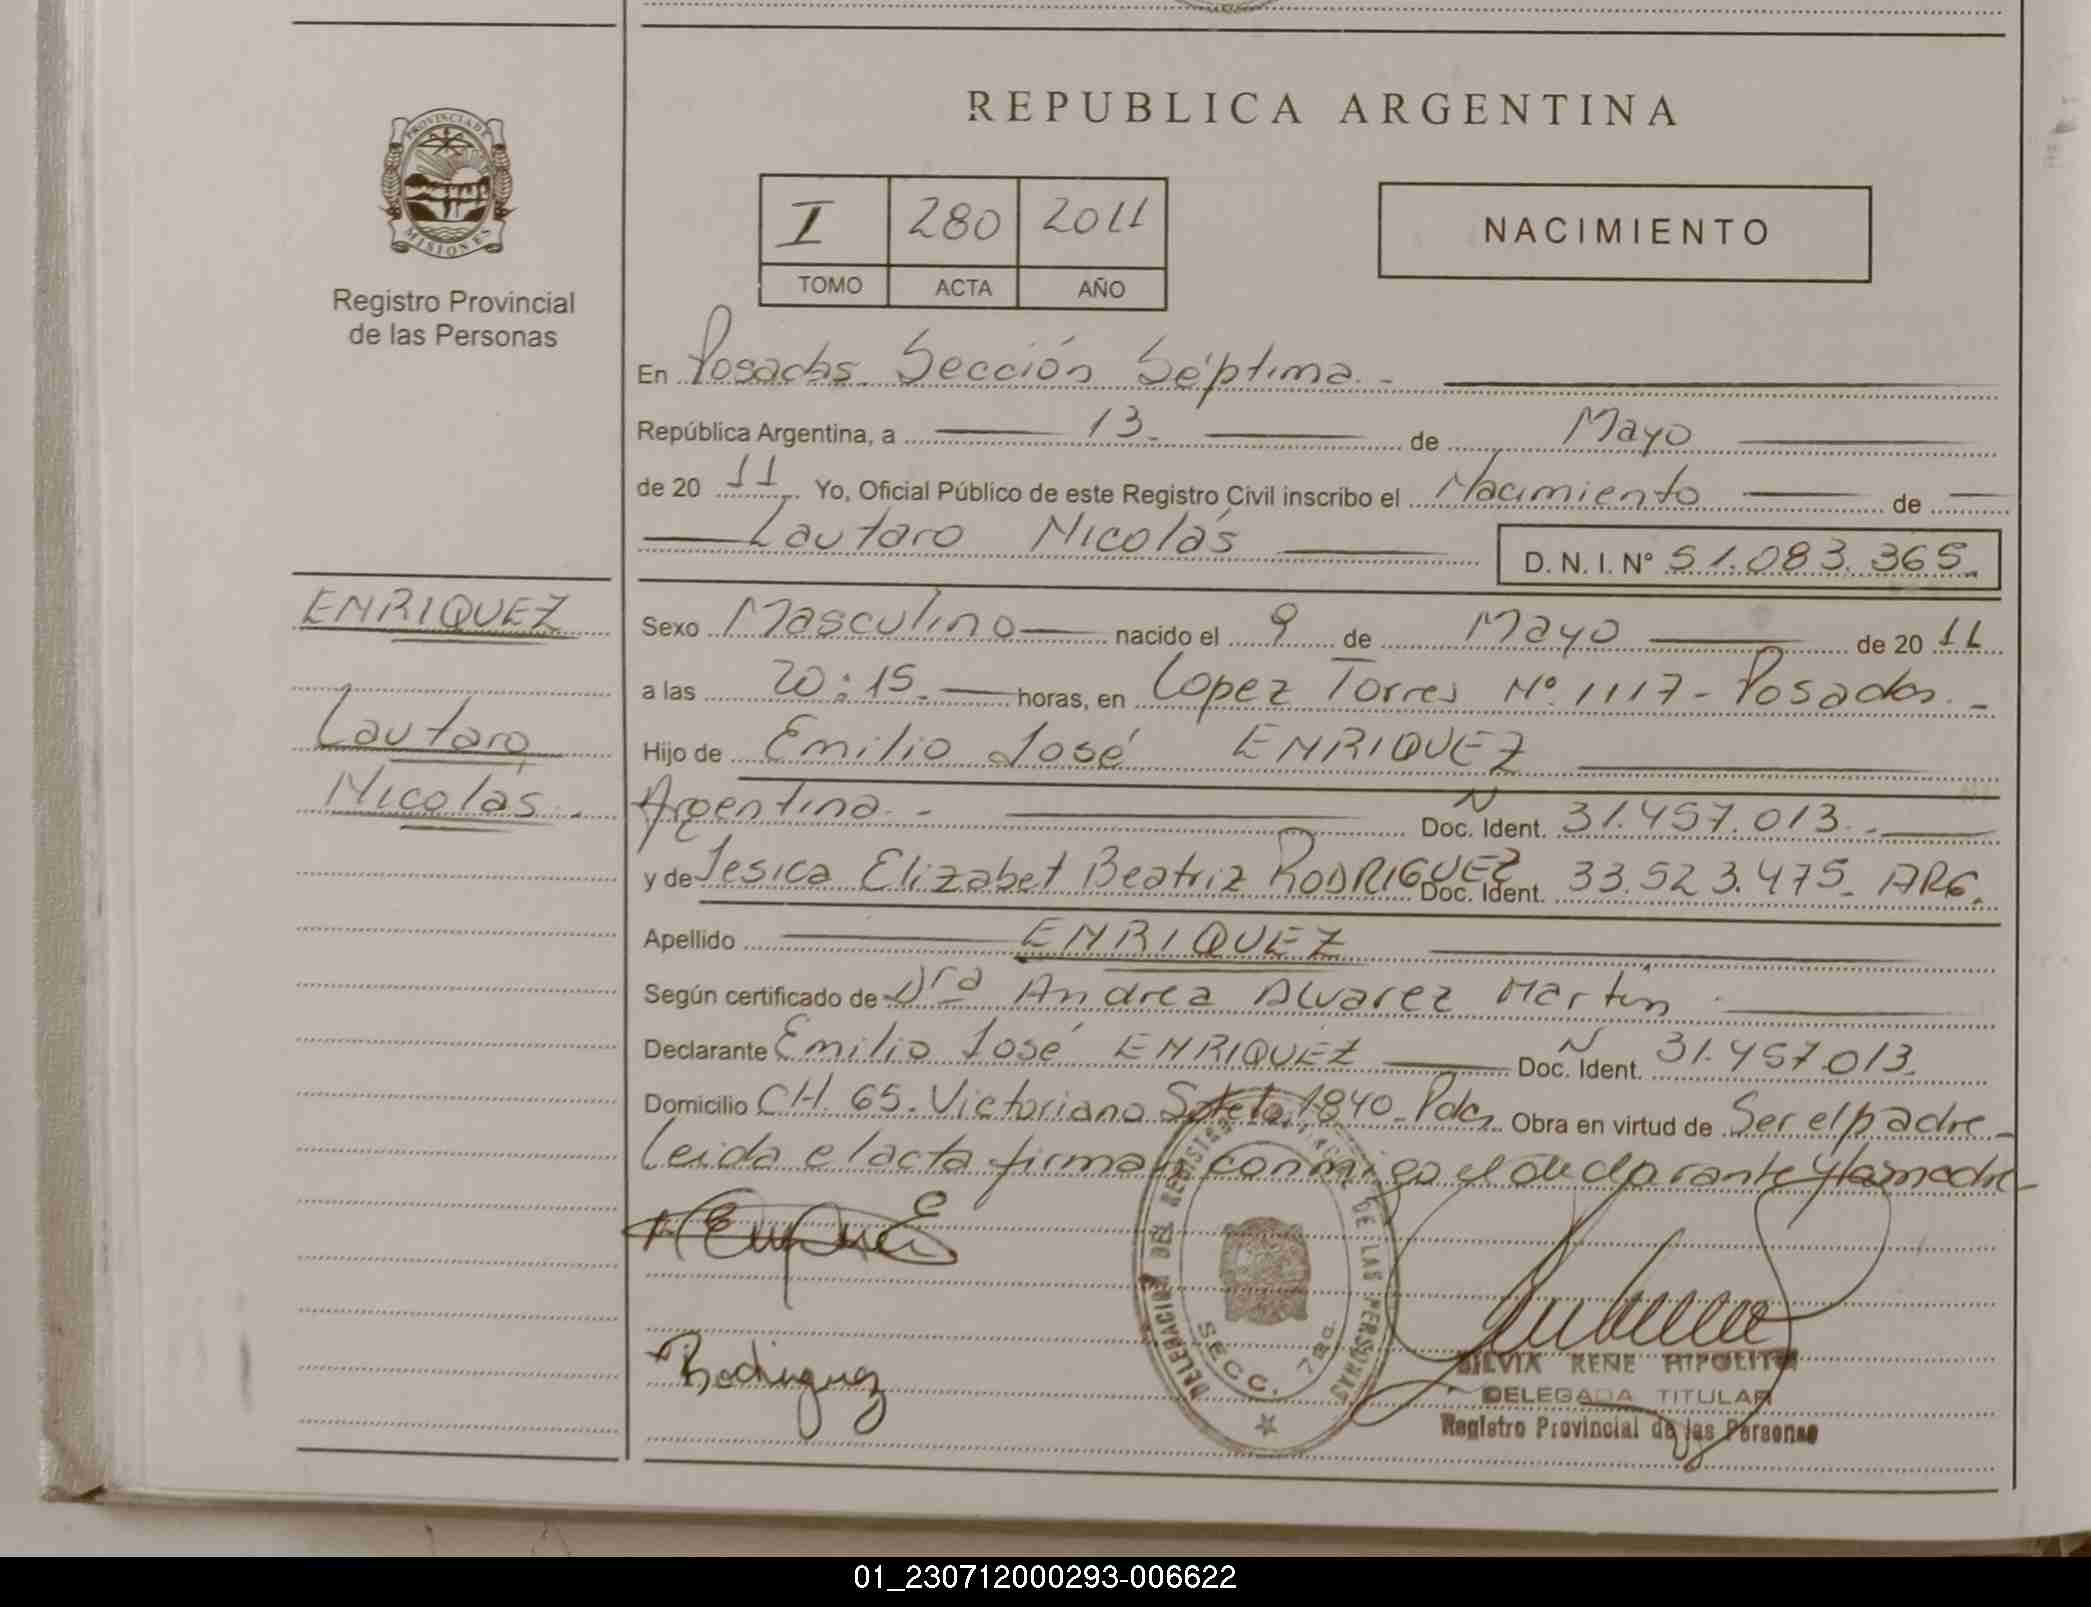 REPUBLICA ARGENTINA
PROVINCIA DE
MISIONES
Registro Provincial
de las Personas
I 280 2011
TOMO ACTA AÑO
NACIMIENTO
En Posadas Sección Séptima.-
República Argentina, a 13. de Mayo
de 20 11 Yo, Oficial Público de este Registro Civil inscribo el Nacimiento de
Lautaro Nicolás D. N. I. Nº 51.083.365.
ENRIQUEZ
Lautaro
Nicolás.-
Sexo Masculino nacido el 9 de Mayo de 20 11
a las 20:15. horas, en Lopez Torres Nº 1117- Posadas.-
Hijo de Emilio José ENRIQUEZ
Argentina.- Doc. Ident. N 31.457.013.
y de Jesica Elizabet Beatriz RODRIGUEZ Doc. Ident. 33.523.475. ARG.
Apellido ENRIQUEZ
Según certificado de Dra Andrea Alvarez Martín
Declarante Emilio José ENRIQUEZ Doc. Ident. N 31.457.013.
Domicilio CH. 65. Victoriano Sotelo 1840. Pdas Obra en virtud de Ser el padre.-
Leida el acta firman conmigo el declarante y la madre
Rodriguez
DELEGACION DEL REGISTRO DE LAS PERSONAS
SECC. 7ma.
SILVIA RENE HIPOLITO
DELEGADA TITULAR
Registro Provincial de las Personas
01_230712000293-006622